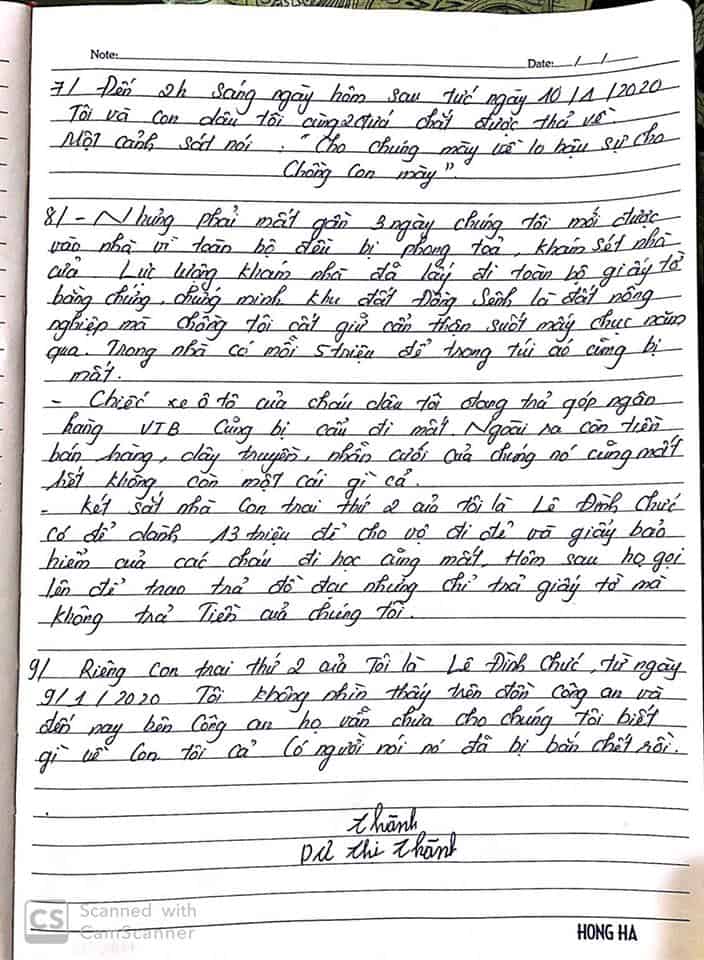 Note:
Date: / /
7/ Đến 2h sáng ngày hôm sau tức ngày 10/1/2020
Tôi và con dâu tôi cùng 2 đứa chắt được thả về
Một cảnh sát nói : "Cho chúng mày về lo hậu sự cho
Chồng Con mày".
8/ - Nhưng phải mất gần 3 ngày chúng tôi mới được
vào nhà vì toàn bộ đều bị phong toả, khám sét nhà
cửa Lực lượng khám nhà đã lấy đi toàn bộ giấy tờ
bằng chứng, chứng minh khu đất Đồng Sênh là đất nông
nghiệp mà chồng tôi cất giữ cẩn thận suốt mấy chục năm
qua. Trong nhà có mỗi 5 triệu để trong túi áo cũng bị
mất.
- Chiếc xe ô tô của cháu dâu tôi đang trả góp ngân
hàng VIB Cũng bị cẩu đi mất. Ngoài ra còn tiền
bán hàng, dây truyền, nhẫn cưới của chúng nó cũng mất
hết không còn một cái gì cả.
- Két sắt nhà Con trai thứ 2 của tôi là Lê Đình Chức
có để dành 13 triệu để cho vợ đi đẻ và giấy bảo
hiểm của các cháu đi học cũng mất, Hôm sau họ gọi
lên để trao trả đồ đạc nhưng chỉ trả giấy tờ mà
không trả Tiền của chúng tôi.
9/ Riêng Con trai thứ 2 của Tôi là Lê Đình Chức, từ ngày
9/1/2020 Tôi không nhìn thấy trên đồn Công an và
đến nay bên Công an họ vẫn chưa cho chúng tôi biết
gì về Con tôi cả Có người nói nó đã bị bắn chết rồi.
Thành
Dư Thị Thành
CS Scanned with
CamScanner
HONG HA